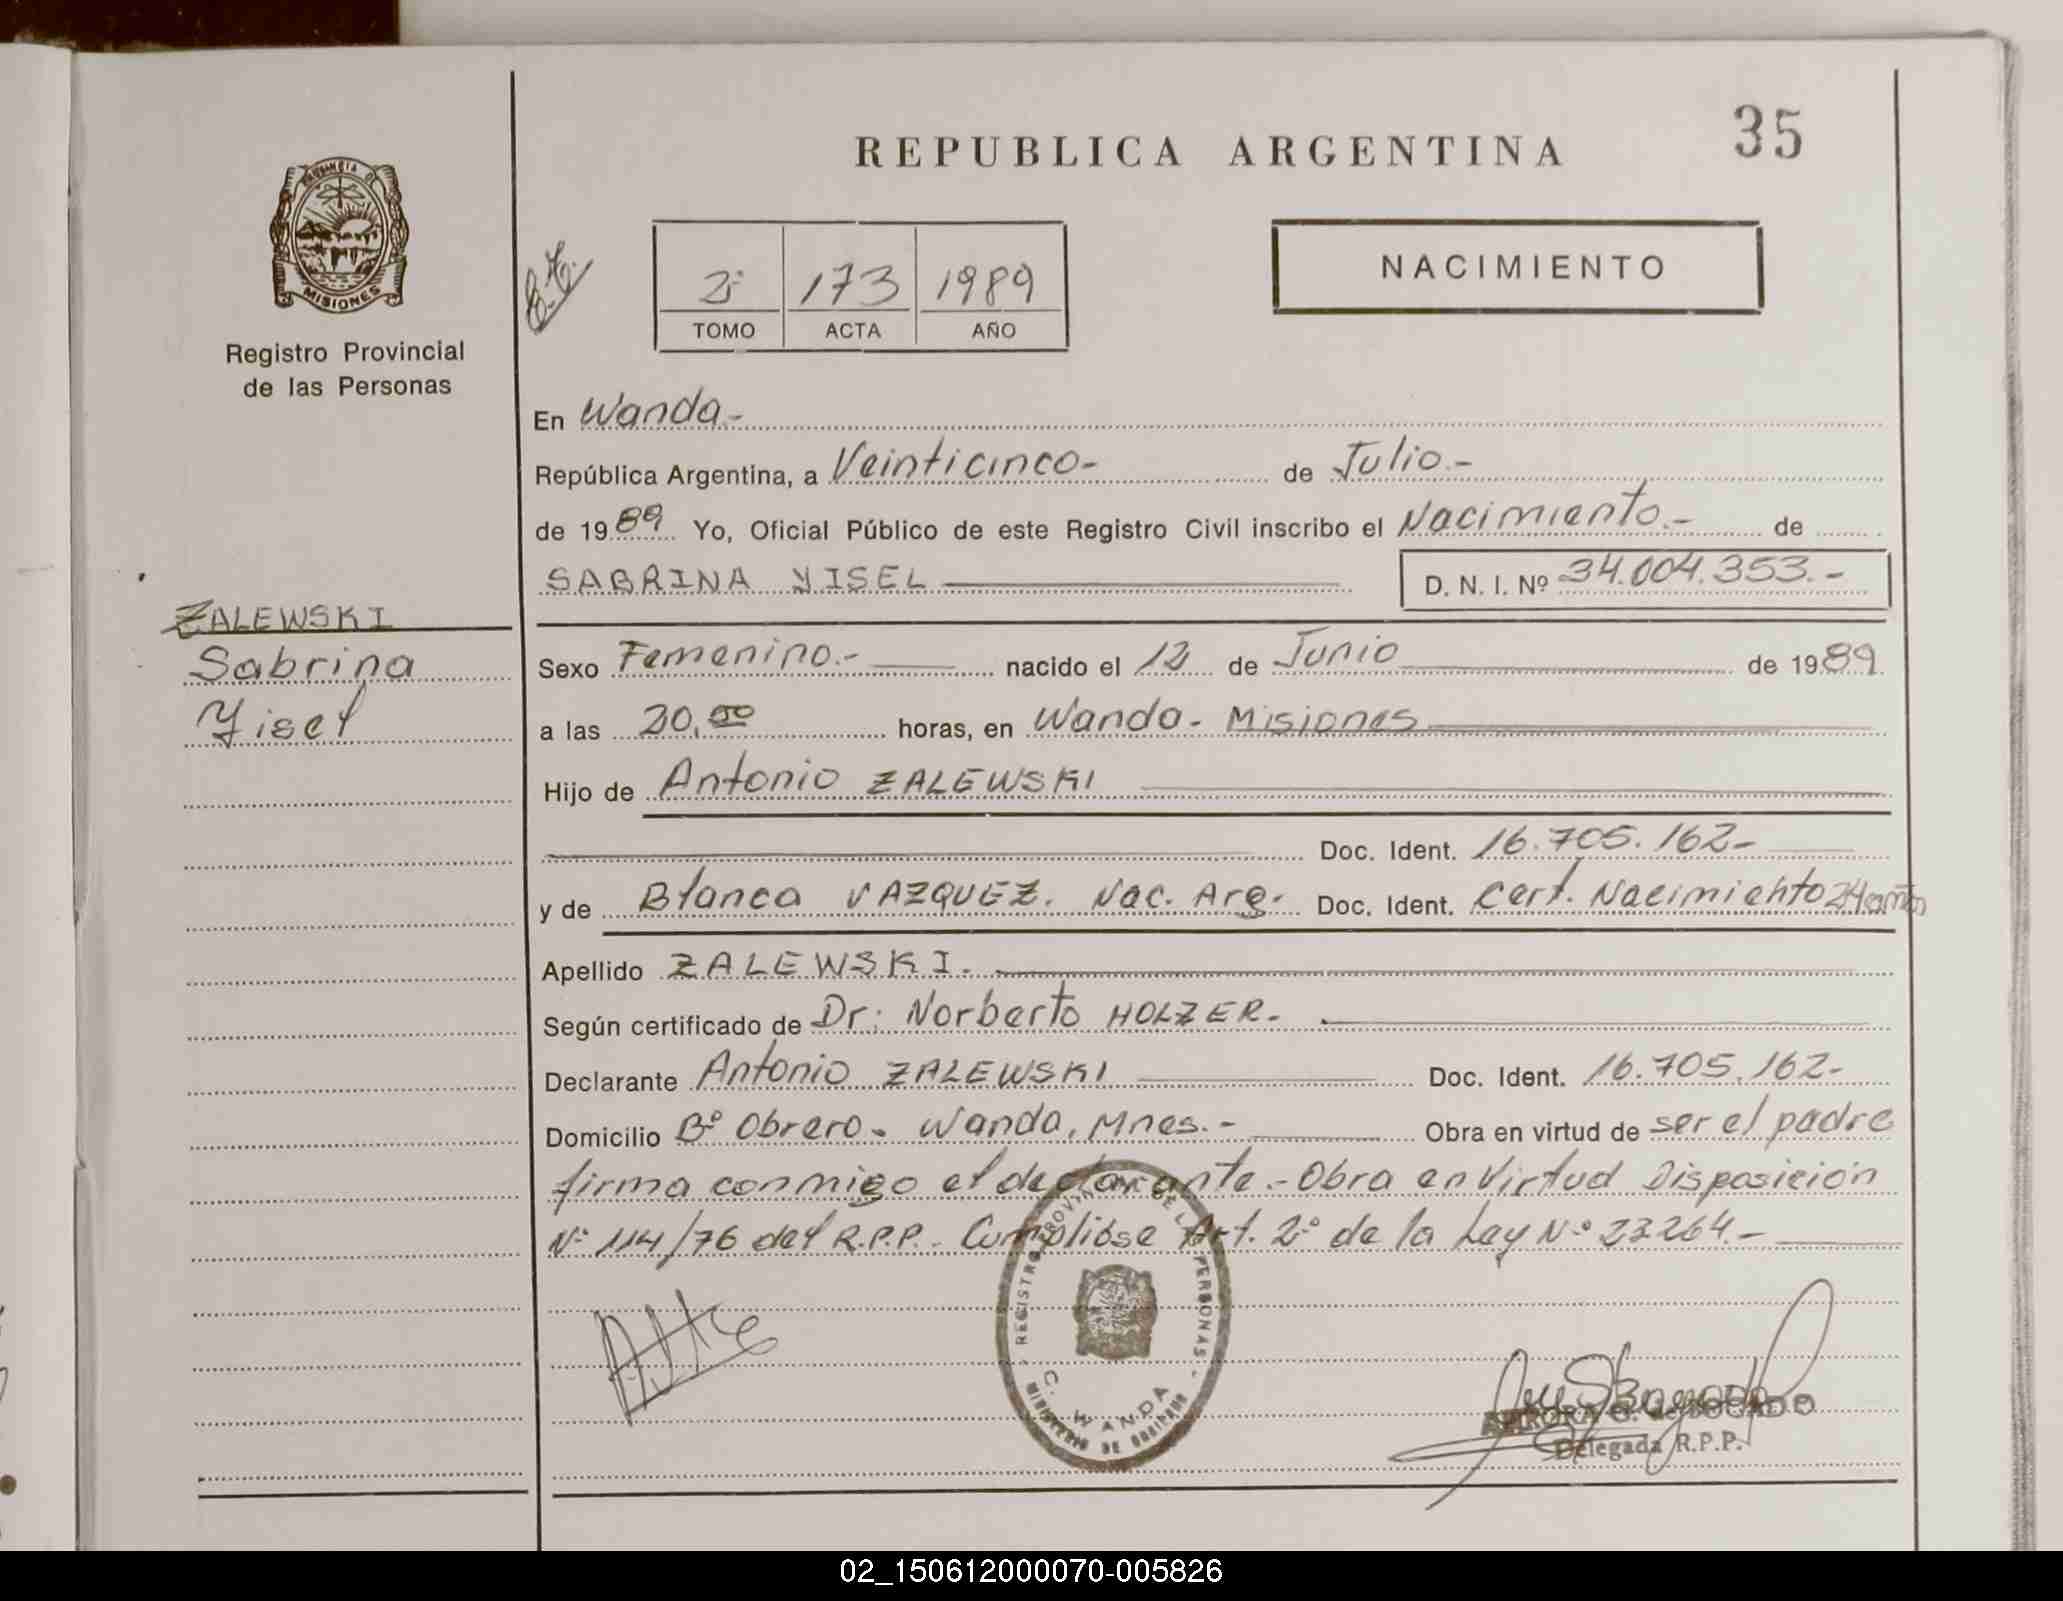 35
REPUBLICA ARGENTINA
PROVINCIA DE
MISIONES
Registro Provincial
de las Personas
2º 173 1989
TOMO ACTA AÑO
NACIMIENTO
En Wanda.-
República Argentina, a Veinticinco- de Julio.-
de 1989 Yo, Oficial Público de este Registro Civil inscribo el Nacimiento.- de
SABRINA YISEL D. N. I. Nº 34.004.353.-
ZALEWSKI
Sabrina
Yisel
Sexo Femenino.- nacido el 12 de Junio de 1989
a las 20,00 horas, en Wanda- Misiones
Hijo de Antonio ZALEWSKI
Doc. Ident. 16.705.162-
y de Blanca VAZQUEZ. Nac. Arg. Doc. Ident. Cert. Nacimiento 24 años
Apellido ZALEWSKI.
Según certificado de Dr: Norberto HOLZER-
Declarante Antonio ZALEWSKI Doc. Ident. 16.705.162-
Domicilio Bº Obrero- Wanda, Mnes.- Obra en virtud de ser el padre
firma conmigo el declarante.- Obra en Virtud Disposición
Nº 114/76 del R.P.P.- Cumplióse Art. 2º de la Ley Nº 23264.-
REGISTRO PROVINCIAL DE LAS PERSONAS
WANDA
MINISTERIO DE GOBIERNO
Delegada R.P.P.
02_150612000070-005826